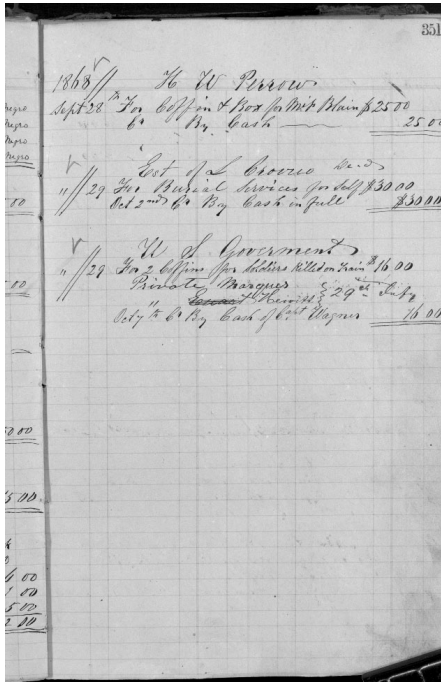 351
1868 // H W Perrow
Sept 28th For Coffin & Box for Mr Blain $25 00
Cr By Cash 25.00
Est of L Dec-d
" // 29 For Burial Services for Self $30.00
Oct 2nd Cr By Cash in full $30.00
U S Goverment
" // 29 For 2 Coffins for Soldiers Killed on Train $16.00
Private Marquer } 29th Infy
Hewitt
Octy 7th Cr By Cash of Capt Wagner 16 00
Negro
Negro
Negro
Negro
00
00
50 00
5 00
4 00
1 00
5 00
2 00